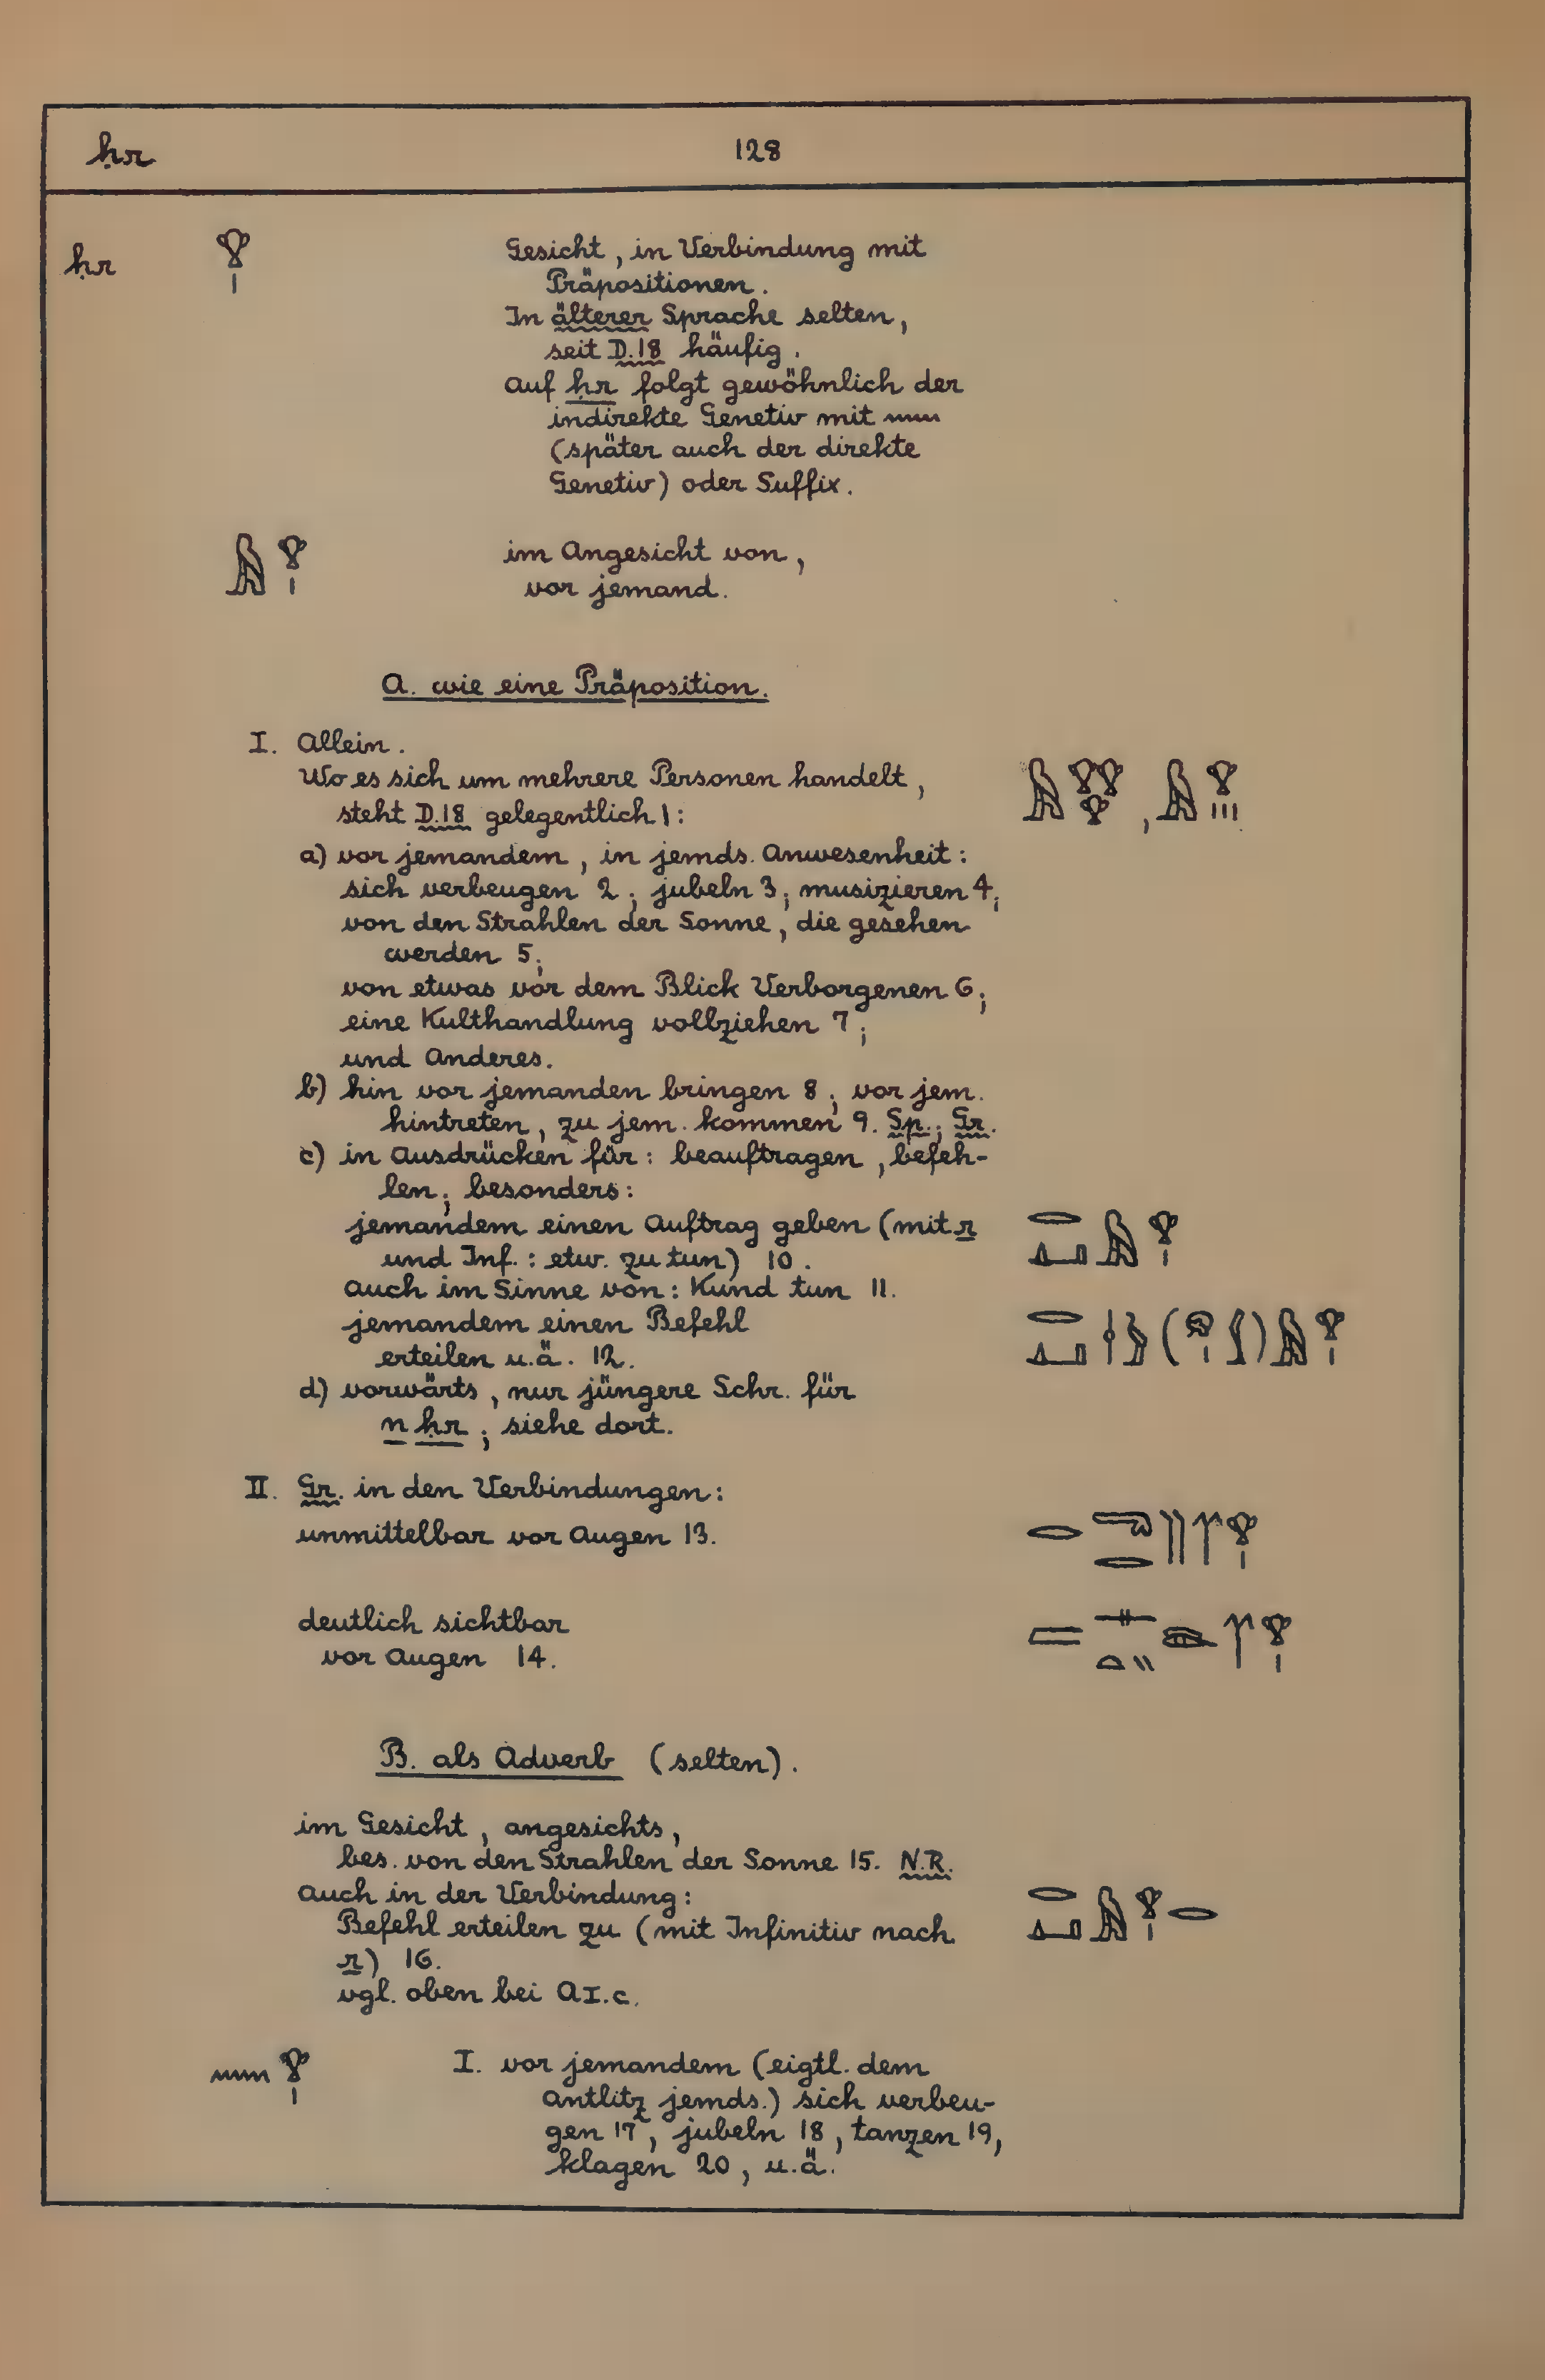 ḥr 128
ḥr 𓁷𓏤 Gesicht, in Verbindung mit
Präpositionen.
In älterer Sprache selten,
seit D.18 häufig.
Auf ḥr folgt gewöhnlich der
indirekte Genetiv mit 𓈖
(später auch der direkte
Genetiv) oder Suffix.
𓅓𓁷𓏤 im Angesicht von,
vor jemand.
A. wie eine Präposition.
I. Allein.
Wo es sich um mehrere Personen handelt,
steht D.18 gelegentlich 1: 𓅓𓁷𓁷𓁷, 𓅓𓁷𓏥
a) vor jemandem, in jemds. Anwesenheit:
sich verbeugen 2; jubeln 3; musizieren 4;
von den Strahlen der Sonne, die gesehen
werden 5;
von etwas vor dem Blick Verborgenen 6;
eine Kulthandlung vollziehen 7;
und Anderes.
b) hin vor jemanden bringen 8; vor jem.
hintreten, zu jem. kommen 9. Sp.; Gr.
c) in Ausdrücken für: beauftragen, befeh-
len; besonders:
jemandem einen Auftrag geben (mit r 𓂋𓂞𓅓𓁷𓏤
und Inf.: etw. zu tun) 10.
auch im Sinne von: Kund tun 11.
jemandem einen Befehl
erteilen u.ä. 12.
d) vorwärts, nur jüngere Schr. für
n ḥr; siehe dort.
II. Gr. in den Verbindungen:
unmittelbar vor Augen 13.
deutlich sichtbar
vor Augen 14.
B. als Adverb (selten).
im Gesicht, angesichts,
bes. von den Strahlen der Sonne 15. N.R.
auch in der Verbindung:
Befehl erteilen zu (mit Infinitiv nach 𓂋𓂞𓅓𓁷𓏤𓂋
r) 16.
vgl. oben bei A I.c.
𓈖𓁷𓏤 I. vor jemandem (eigtl. dem
Antlitz jemds.) sich verbeu-
gen 17, jubeln 18, tanzen 19,
klagen 20, u.ä.